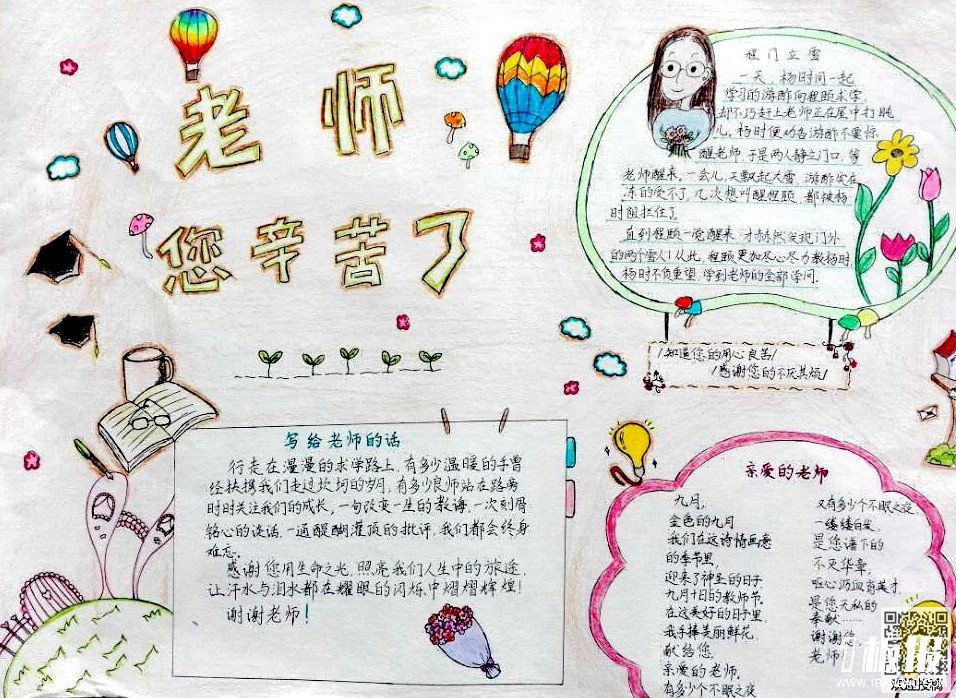 老师
您辛苦了
程门立雪
一天，杨时同一起
学习的游酢向程颐求学，
却不巧赶上老师正在屋中打盹
儿，杨时便劝告游酢不要惊
醒老师，于是两人静立门口，等
老师醒来。一会儿，天飘起大雪，游酢实在
冻的受不了，几次想叫醒程颐，都被杨
时阻拦住了。
直到程颐一觉醒来，才赫然发现门外
的两个雪人！从此，程颐更加尽心尽力教杨时，
杨时不负重望，学到老师的全部学问。
知道您的用心良苦！
感谢您的不厌其烦！
写给老师的话
行走在漫漫的求学路上，有多少温暖的手曾
经扶携我们走过坎坷的岁月，有多少良师站在路旁
时时关注我们的成长，一句改变一生的教诲，一次刻骨
铭心的谈话，一遍醍醐灌顶的批评，我们都会终身
难忘。
感谢您用生命之光，照亮我们人生中的旅途，
让汗水与泪水都在耀眼的闪烁中熠熠辉煌！
谢谢老师！
亲爱的老师
九月，
金色的九月
我们在这诗情画意
的季节里，
迎来了神圣的日子
九月十日的教师节，
在这美好的日子里
我手捧美丽鲜花，
献给您
亲爱的老师。
有多少个不眠之夜
又有多少个不眠之夜
一缕缕白发，
是您谱下的
不灭华章，
呕心沥血育英才，
是您无私的
奉献……
谢谢您，
老师！